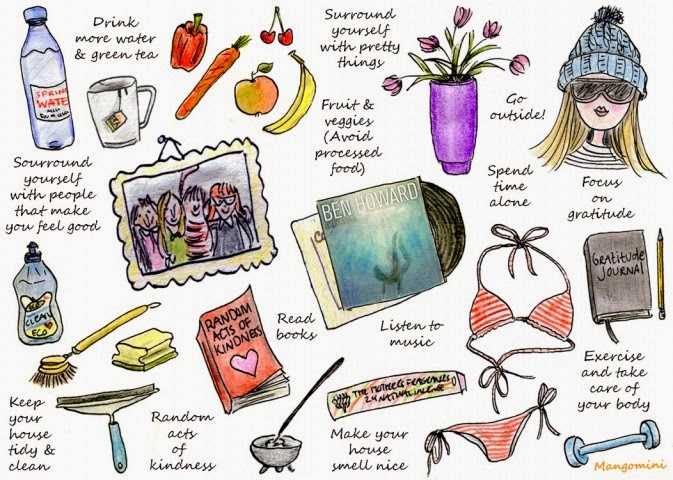 Drink
more water
& green tea
Surround
yourself
with pretty
things
SPRING
WATER
Fruit &
veggies
(Avoid
processed
food)
Go
outside!
Sourround
yourself
with people
that make
you feel good
Spend
time
alone
Focus
on
gratitude
BEN HOWARD
GRATITUDE
JOURNAL
CLEAN
ECO
RANDOM
ACTS OF
KINDNESS
Read
books
Listen to
music
Exercise
and take
care of
your body
Keep
your
house
tidy &
clean
Random
acts
of
kindness
THE MOTHER'S FRAGRANCES
24 NATURAL INCENSE
Make your
house
smell nice
Mangomini